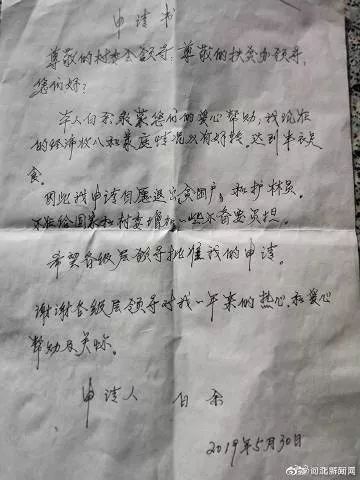 申请书
尊敬的村委会领导：尊敬的扶贫办领导，
您们好？
本人白余承蒙您们的爱心帮助，我现在
的经济收入和家庭情况以有好转。达到丰衣足
食。
因此我申请自愿退出贫困户，和护林员。
不在给国家和村委增加一些不必要负担。
希望各级层领导批准我的申请。
谢谢各级层领导对我一年来的热心和爱心
帮助及关怀。
申请人 白余
2019年5月30日
@河北新闻网